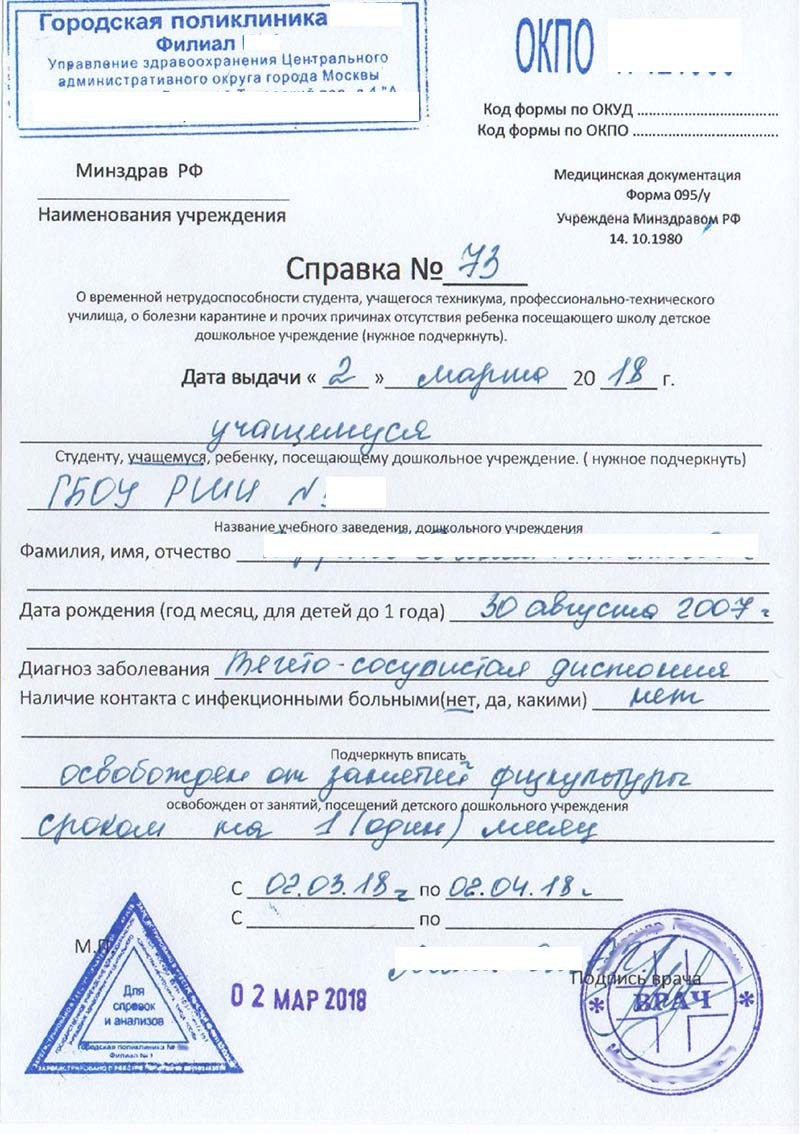 Городская поликлиника
Филиал
Управление здравоохранения Центрального
административного округа города Москвы
ОКПО
Код формы по ОКУД
Код формы по ОКПО
Минздрав РФ
Наименования учреждения
Медицинская документация
Форма 095/у
Учреждена Минздравом РФ
14. 10.1980
Справка № 73
О временной нетрудоспособности студента, учащегося техникума, профессионально-технического
училища, о болезни карантине и прочих причинах отсутствия ребенка посещающего школу детское
дошкольное учреждение (нужное подчеркнуть).
Дата выдачи « 2 » марта 20 18 г.
учащемуся
Студенту, учащемуся, ребенку, посещающему дошкольное учреждение. ( нужное подчеркнуть)
ГБОУ РШИ №
Название учебного заведения, дошкольного учреждения
Фамилия, имя, отчество
Дата рождения (год месяц, для детей до 1 года) 30 августа 2007 г
Диагноз заболевания Вегето-сосудистая дистония
Наличие контакта с инфекционными больными(нет, да, какими) нет
Подчеркнуть вписать
освобожден от занятий физкультуры
освобожден от занятий, посещений детского дошкольного учреждения
сроком на 1 (один) месяц
С 02.03.18 г по 02.04.18 г.
С по
М.П
Подпись врача
ВРАЧ
02 МАР 2018
Для
справок
и анализов
Городская поликлиника №
Филиал № 1